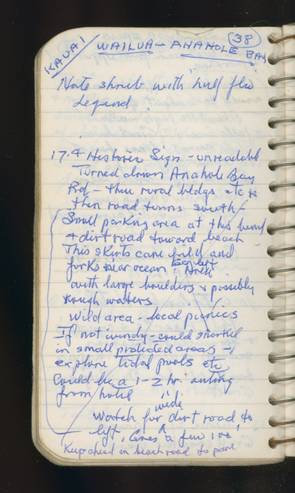 KAUAI
WAILUA - ANAHOLE BAY
38
Note shrub with half flw
Legend
17.4 Historic Sign - unreadable
Turned down Anahole Bay
Rd - thru rural bldgs etc
then road turns south/
Small parking area at this bend
& dirt road toward beach
This skirts cane field and
forks near ocean Area
with large boulders & possibly
rough waters
Wild area - local picnics
If not windy - could snorkel
in small protected areas -
explore tidal pools etc
Could be a 1-2 hr outing
from hotel
wide
Watch for dirt road to
left, a few
Keep ahead on beach road to